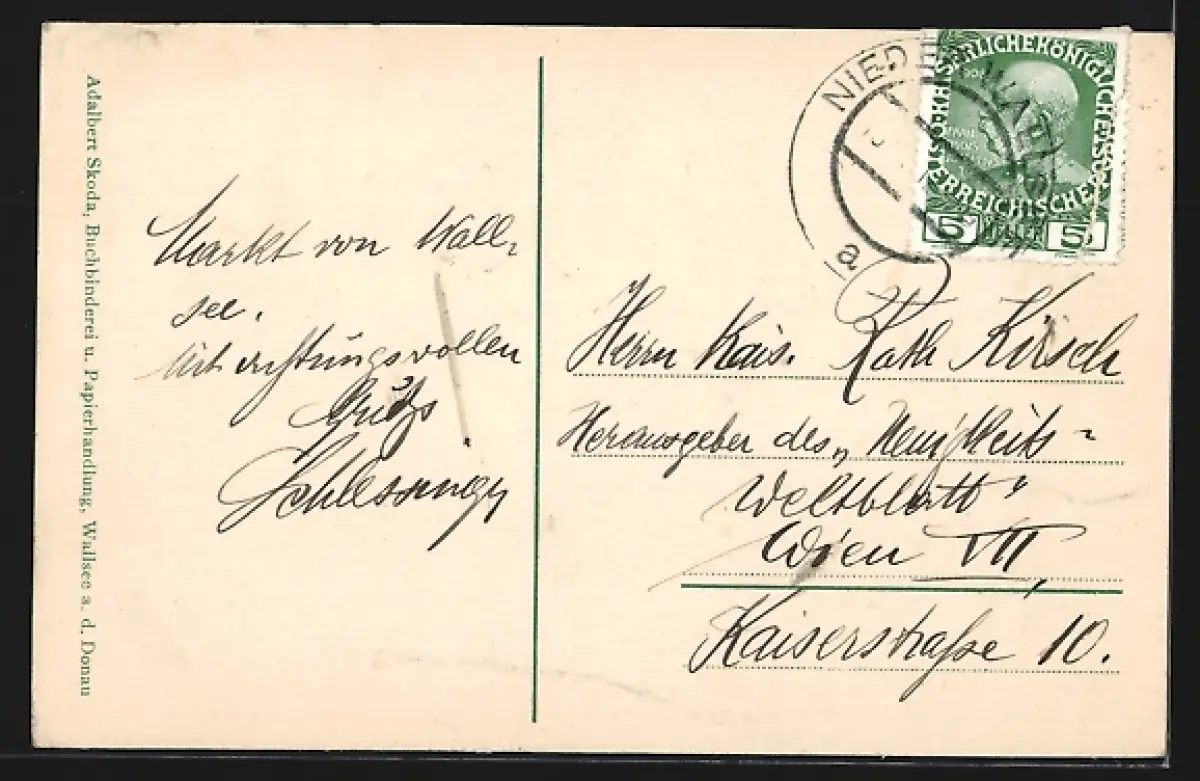 Adalbert Skoda, Buchbinderei u. Papierhandlung, Wallsee a. d. Donau
Markt von Wall-
see.
Mit achtungsvollen
Schlessinger
NIED WALLS
a
KAISERLICHE KÖNIGLICHE ÖSTERREICHISCHE POST
5 HELLER 5
Herrn Kais. Rath Kirsch
Herausgeber des „Neuigkeits-
Weltblatt"
Wien VII,
Kaiserstraße 10.